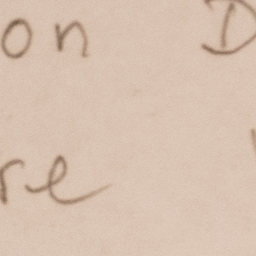 on D
re